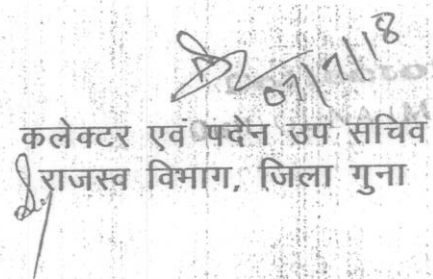 07/7/18
कलेक्टर एवं पदेन उप सचिव
राजस्व विभाग, जिला गुना